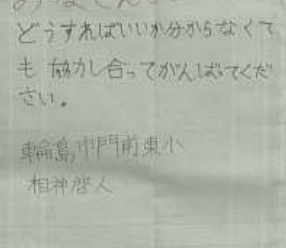 どうすればいいか分からなくて
も 協力し合ってがんばってくだ
さい。
輪島市門前東小
相神啓人